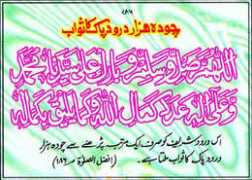 ۷۸۶
چودہ ہزار درود پاک کا ثواب
اللهم صل وسلم وبارك على سيدنا محمد
وعلى اله عدد كمال الله وكما يليق بكماله
اس درود شریف کو صرف ایک مرتبہ پڑھنے سے چودہ ہزار
درود پاک کا ثواب ملتا ہے۔ (افضل الصلوٰۃ ص۱۸۶)